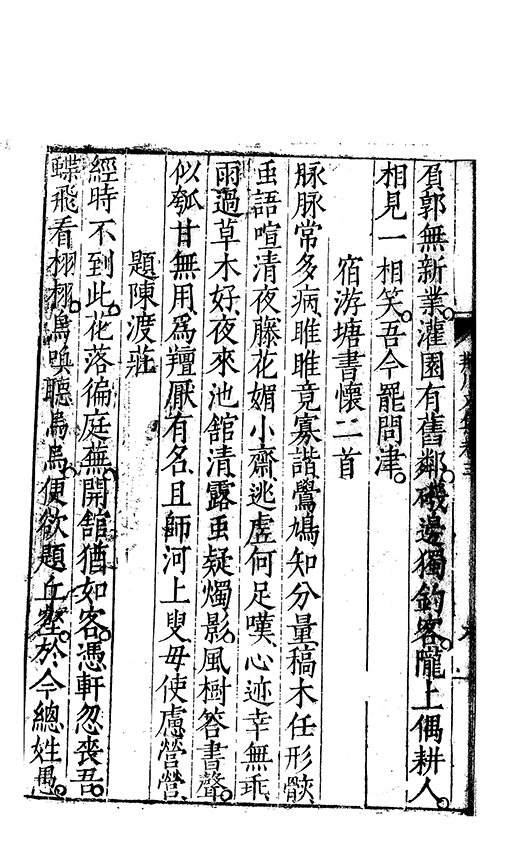 負郭無新業灌園有舊鄰磯邊獨釣客隴上偶耕人
相見一相笑吾今罷問津
宿游塘書懷二首
脉脉常多病睢睢竟寡諧鷽鳩知分量稿木任形骸
虫語喧清夜藤花媚小齋逃虛何足嘆心迹幸無乖
雨過草木好夜來池館清露虫疑燭影風樹答書聲
似瓠甘無用爲羶厭有名且師河上叟毋使慮營營
題陳渡莊
經時不到此花落徧庭蕪開舘猶如客憑軒忽喪吾
蝶飛看栩栩鳥喚聽烏烏便欲題丘壑於今總姓愚